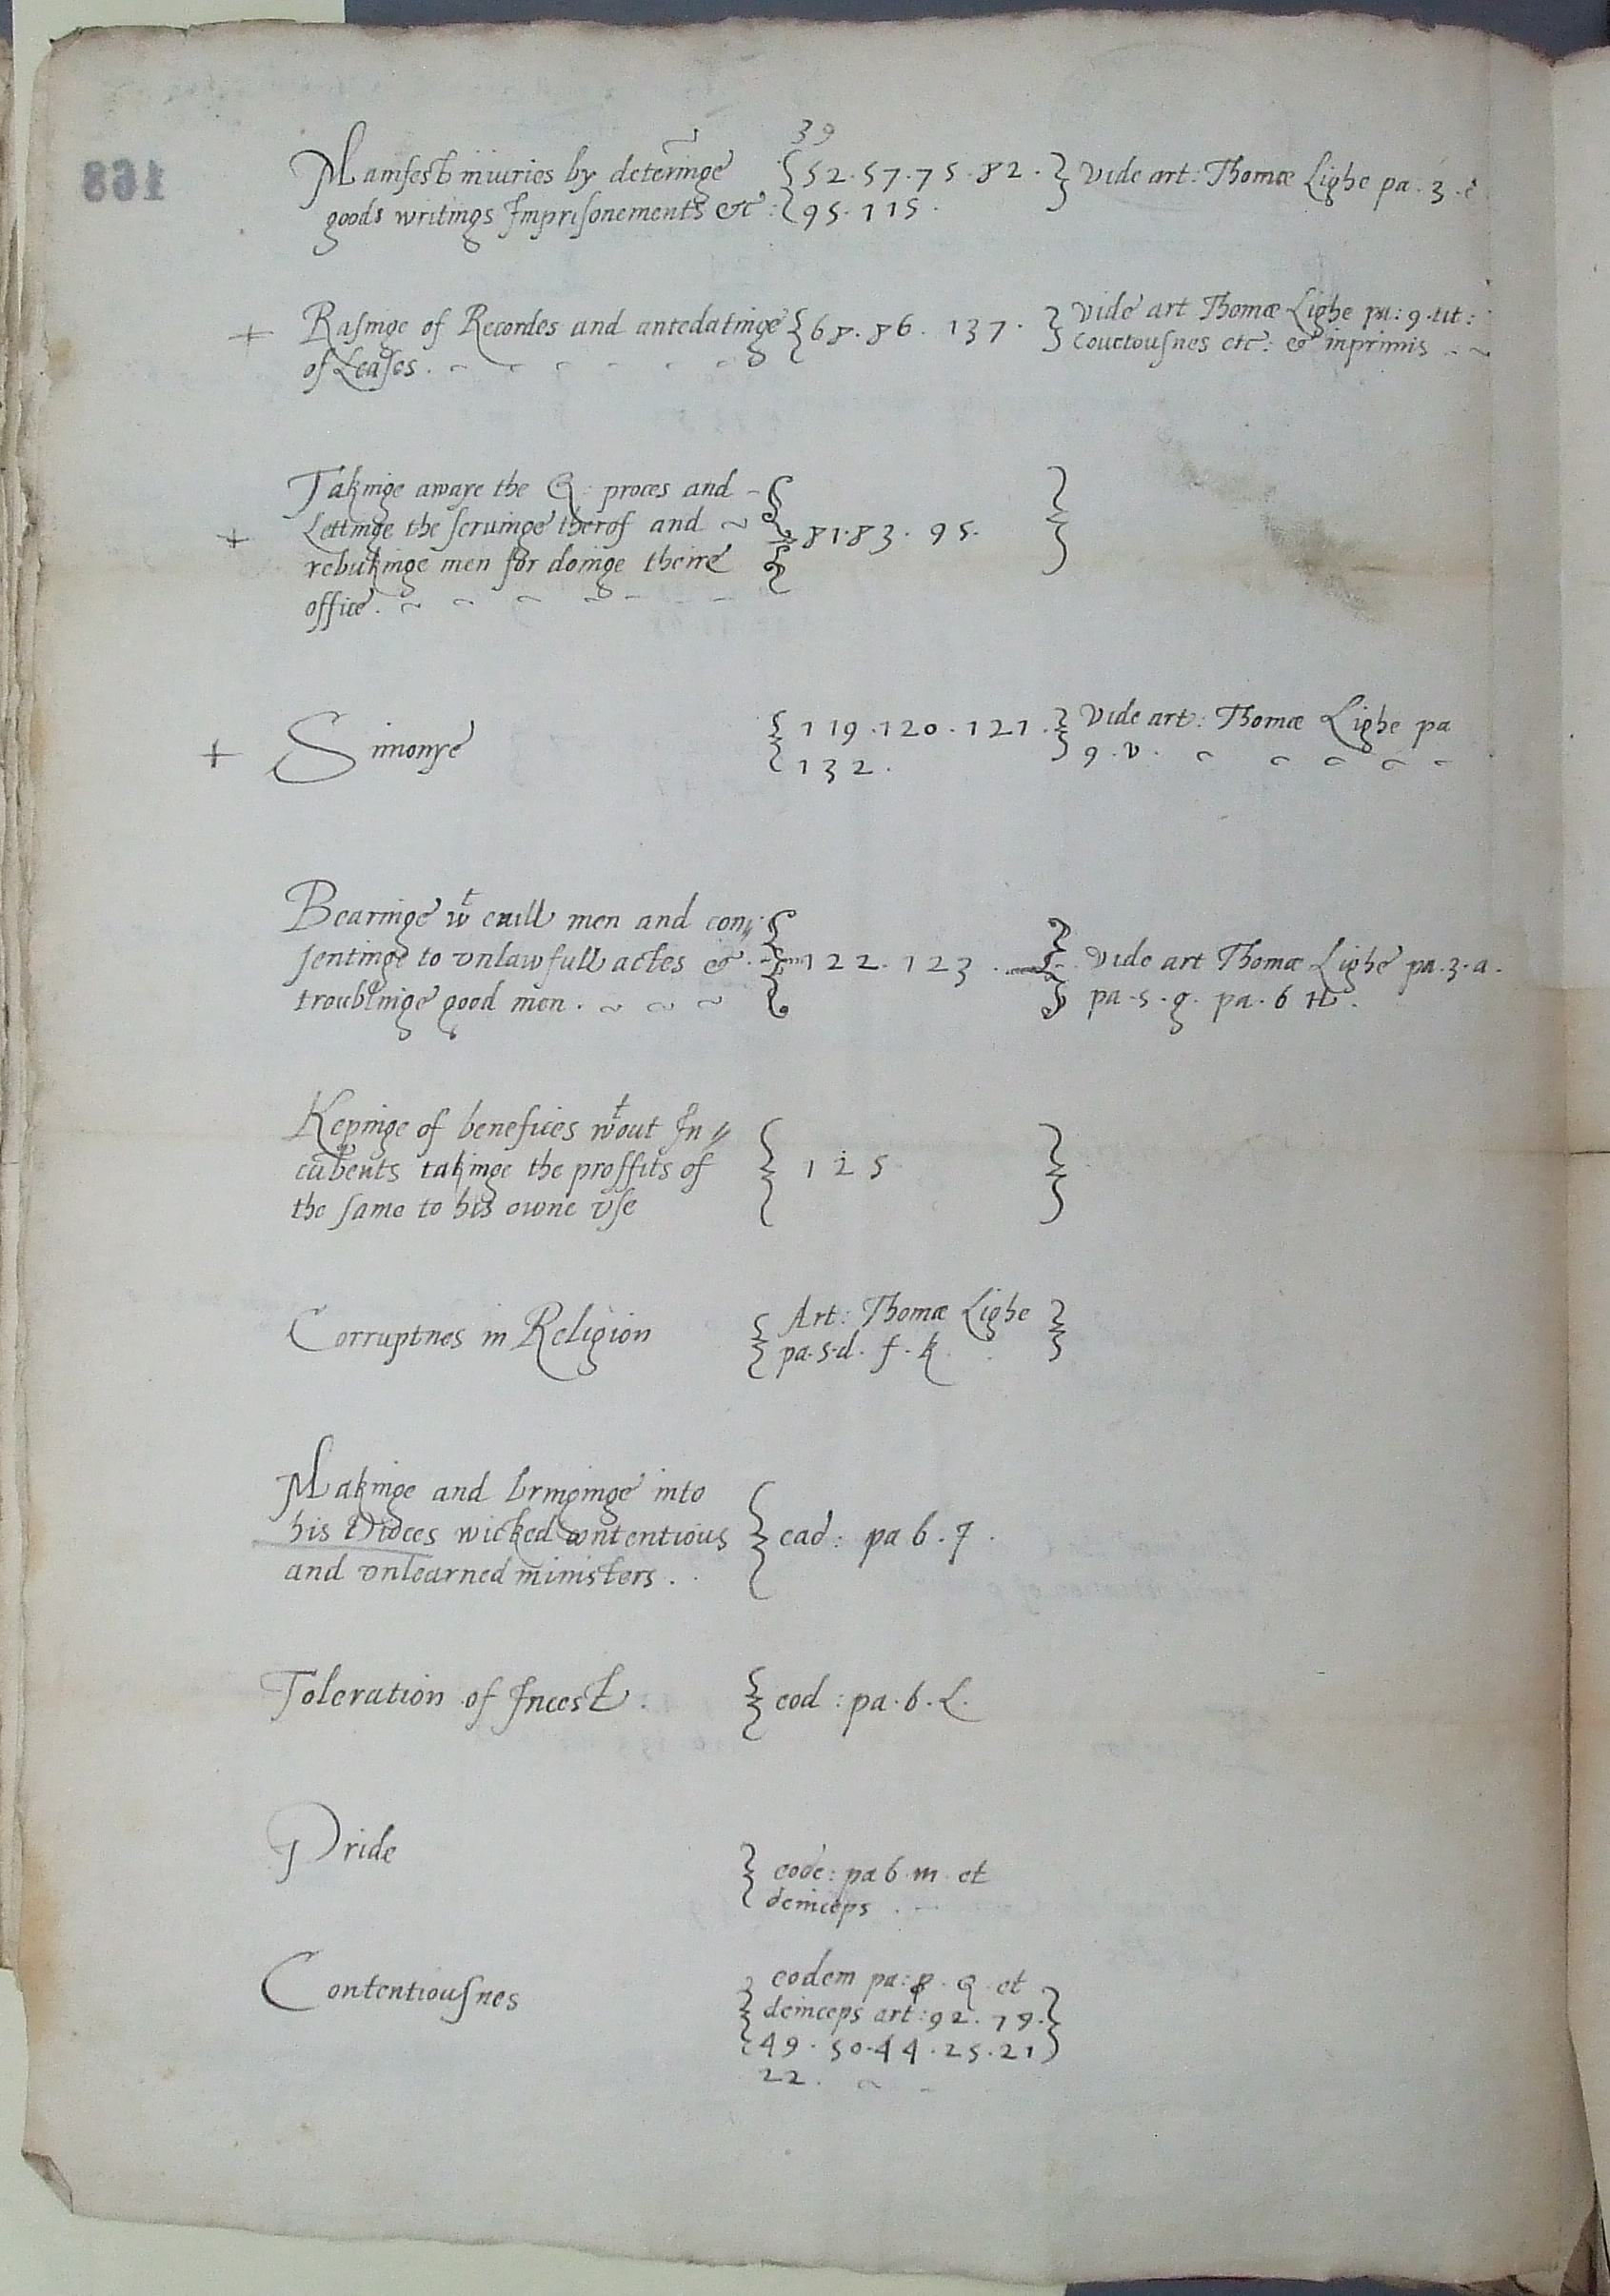 39
Manifest iniuries by deteninge {52.57.75.82.} Vide art: Thomæ Lighe pa.3.c
goods writings Imprisonements &c: {95.115.
+ Rasinge of Recordes and antedatinge {68.86.137.} Vide art Thomæ Lighe pa:9.tit:
of Leases. couetousnes etc: & inprimis
Takinge awaye the Q: proces and
+ Lettinge the seruinge therof and {81.83.95.}
rebukinge men for doinge theire
office.
+ Simonye {119.120.121.} Vide art: Thomæ Lighe pa
132. 9.v.
Bearinge wt euill men and con//
sentinge to vnlawfull actes & {122.123.} vide art Thomæ Lighe pa.3.a.
troublinge good men. pa.5.g. pa.6
Kepinge of benefices wtout In//
cūbents takinge the proffits of {125}
the same to his owne vse
Corruptnes in Religion {Art: Thomæ Lighe}
pa.5.d. f.k
Makinge and bringinge into
his Dioces wicked contentious {ead: pa 6.7.
and vnlearned ministers.
Toleration of Incest. {eod: pa.6.L.
Pride {eode: pa 6.m. et
deinceps.
Contentiousnes {eodem pa:8.Q. et
deinceps art:92.79.
49.50.44.25.21
22.
168